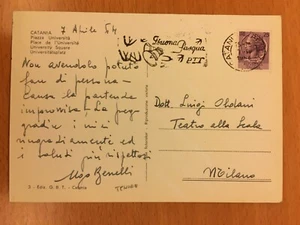 CATANIA
Piazza Università
Place de l'Université
University Square
Universitätsplatz
7 Aprile 54
Buona
Pasqua
Non avendolo potuto
fare di persona
causa la partenza
improvvisa, La prego
gradire i miei
ringraziamenti ed
i saluti più rispettosi
Ugo Benelli
TENORE
Dott. Luigi Oldani
Teatro alla Scala
Milano